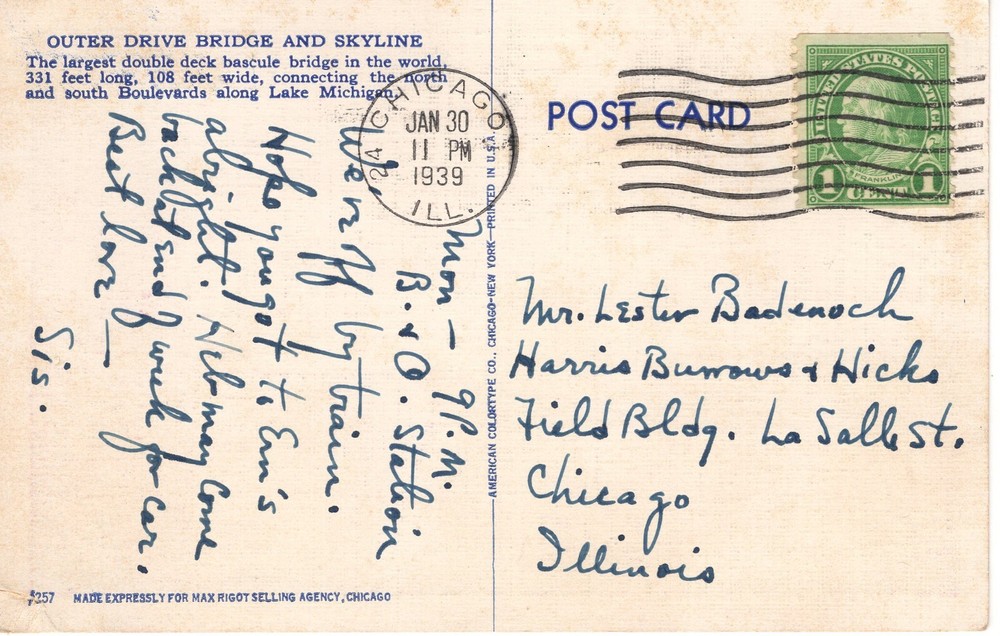 OUTER DRIVE BRIDGE AND SKYLINE
The largest double deck bascule bridge in the world,
331 feet long, 108 feet wide, connecting the north
and south Boulevards along Lake Michigan.
Mon— 9 P.M.
B. & O. Station
We're off by train.
Hope you got to Em's
alright. Neb may come
back at end of week for car.
Best love—
Sis.
CHICAGO
24
JAN 30
11 PM
1939
ILL.
AMERICAN COLORTYPE CO., CHICAGO-NEW YORK—PRINTED IN U.S.A.
POST CARD
UNITED STATES POSTAGE
FRANKLIN
1 CENT 1
Mr. Lester Badenoch
Harris Burrows & Hicks
Field Bldg. La Salle St.
Chicago
Illinois
257 MADE EXPRESSLY FOR MAX RIGOT SELLING AGENCY, CHICAGO